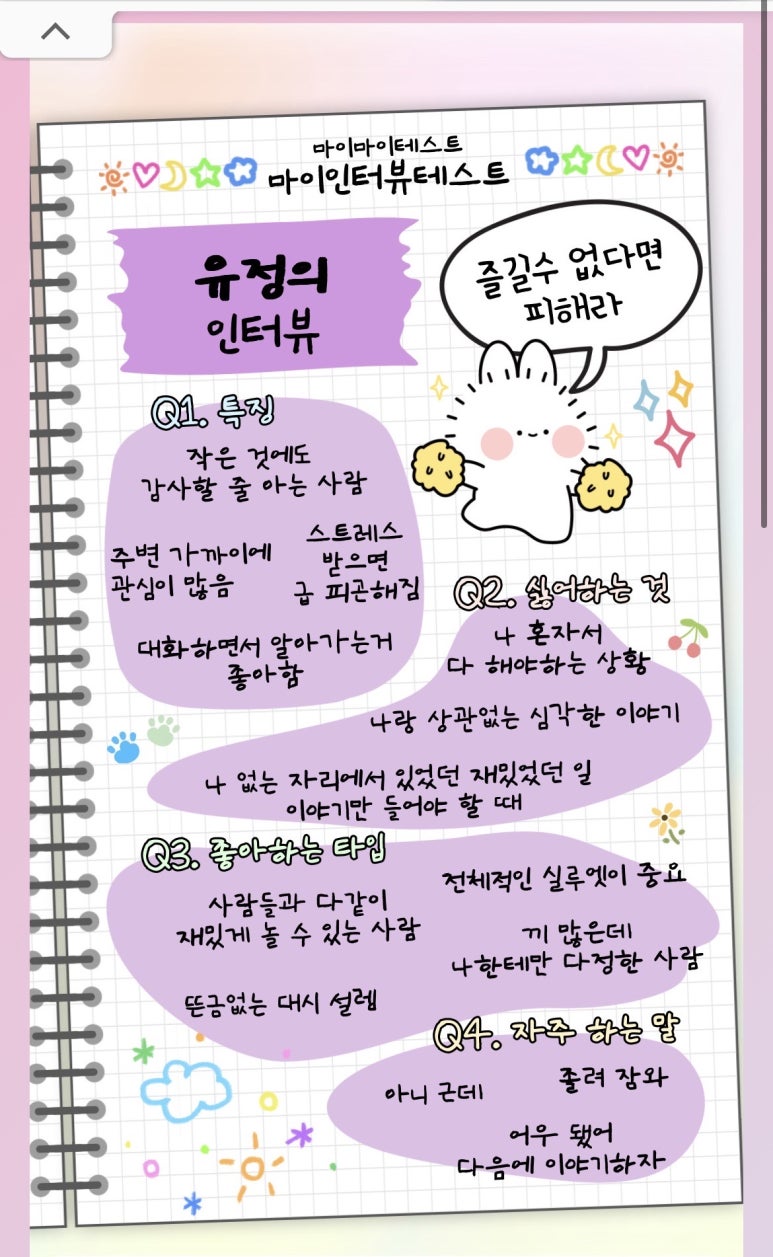 마이마이테스트
마이인터뷰테스트
유정의
인터뷰
즐길수 없다면
피해라
Q1. 특징
작은 것에도
감사할 줄 아는 사람
주변 가까이에
관심이 많음
스트레스
받으면
급 피곤해짐
대화하면서 알아가는거
좋아함
Q2. 싫어하는 것
나 혼자서
다 해야하는 상황
나랑 상관없는 심각한 이야기
나 없는 자리에서 있었던 재밌었던 일
이야기만 들어야 할 때
Q3. 좋아하는 타입
사람들과 다같이
재밌게 놀 수 있는 사람
전체적인 실루엣이 중요
끼 많은데
나한테만 다정한 사람
뜬금없는 대시 설렘
Q4. 자주 하는 말
아니 근데
졸려 잠와
어우 됐어
다음에 이야기하자